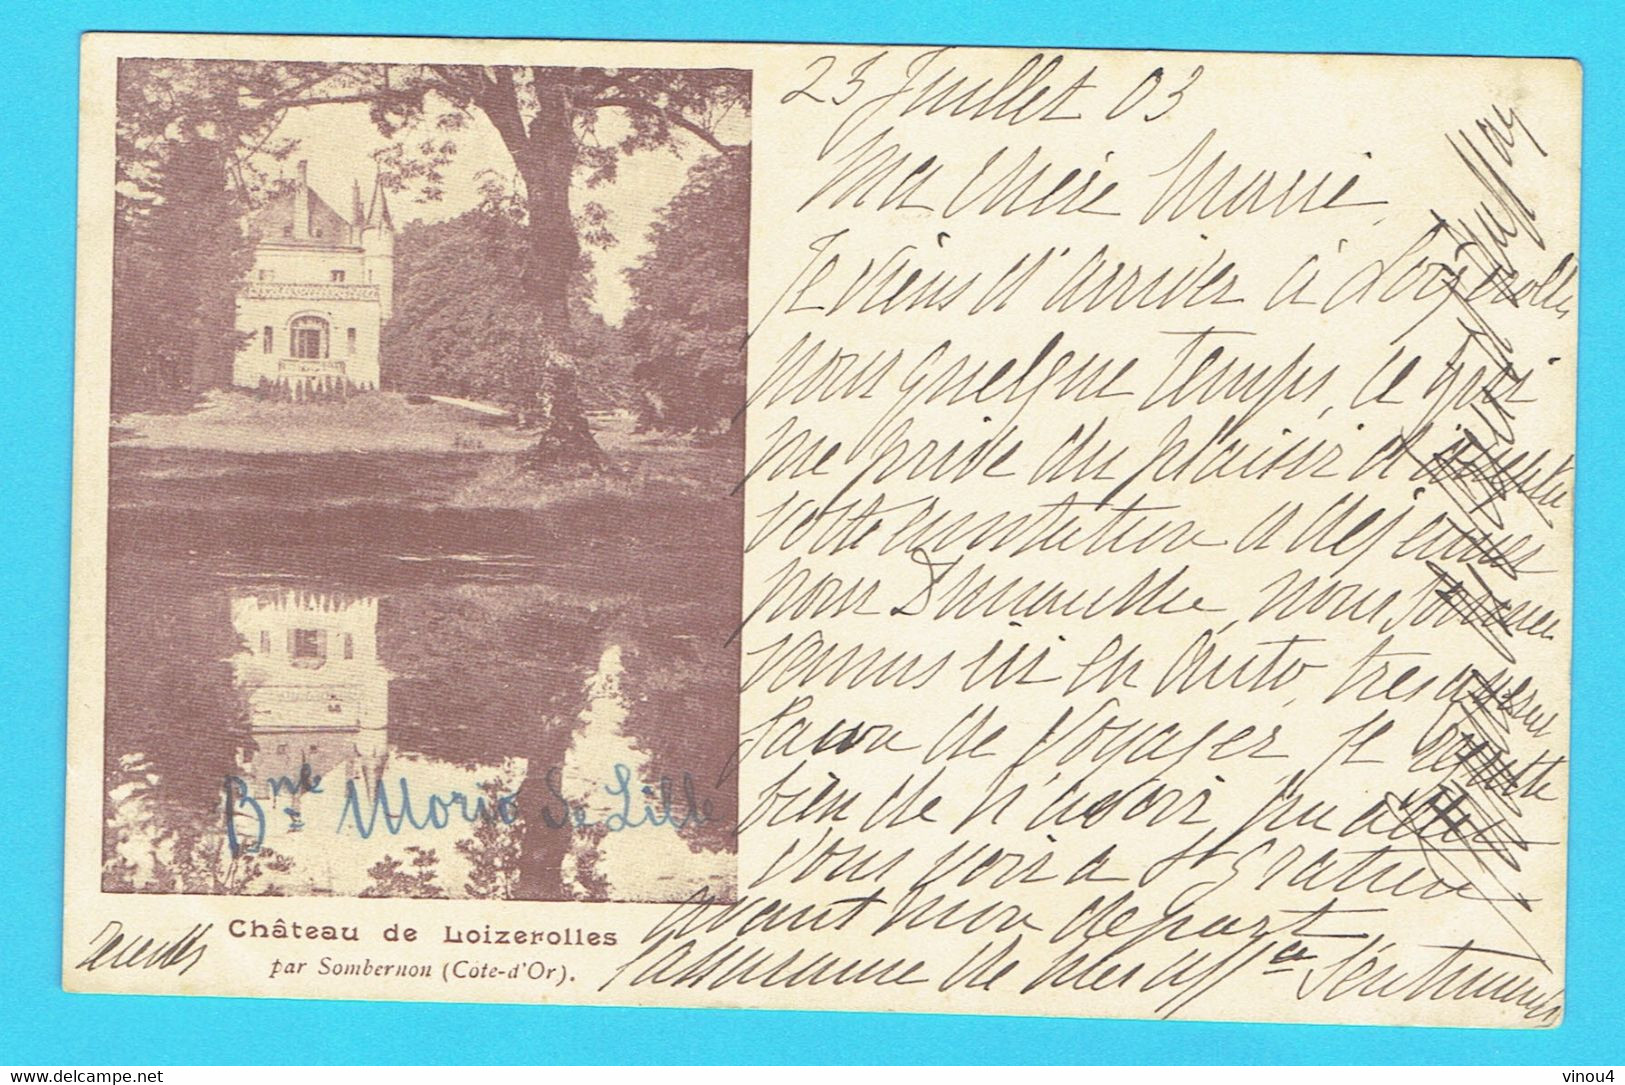 23 Juillet 03
Ma chère Marie,
Je viens d'arriver à Loizerolles
pour quelque temps, ce qui
me prive du plaisir d'
votre invitation a dejeuner
pour Dimanche, nous sommes
venus ici en auto, tres agreable
facon de voyager, je regrette
bien de n'avoir pu aller
vous voir a St Gratien
avant mon depart
Recevez l'assurance de mes aff ce Sentiments
Bne Morio de Lille
Château de Loizerolles
par Sombernon (Côte-d'Or).
delcampe.net
vinou4